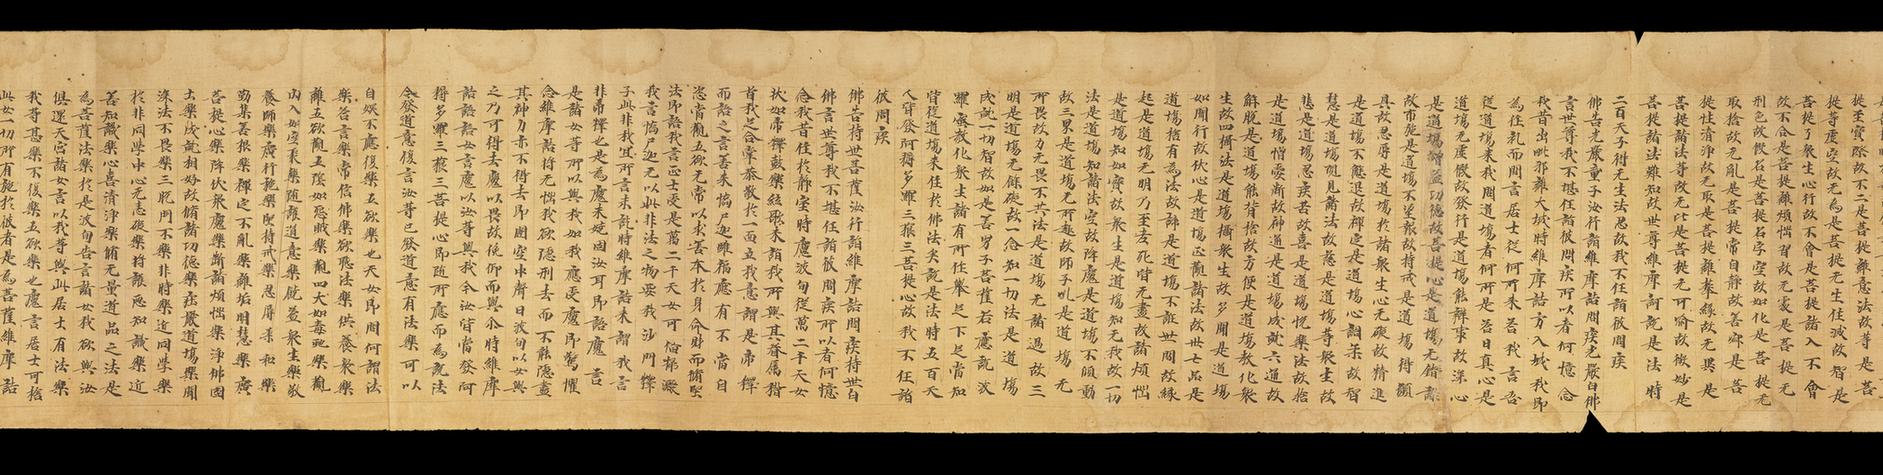 提至實際故不二是菩提離意法故等是
提等虛空故无為是菩提无生住滅故智是
菩提了衆生心行故不會是菩提諸入不會
故不合是菩提離煩惱習故无處是菩提无
刑色故假名是菩提名字空故如化是菩提无
取捨故无亂是菩提常自靜故善寂是菩
提性清淨故无取是菩提離攀緣故无異是
菩提諸法等故无比是菩提无可喻故微妙是
菩提諸法難知故世尊維摩詰說是法時
二百天子得无生法忍故我不任詣彼問疾
佛告光嚴童子汝行詣維摩詰問疾光嚴白佛
言世尊我不堪任詣彼問疾所以者何憶念
我昔出毗耶離大城時維摩詰方入城我即
為作礼而問言居士從何所來荅我言吾
從道場來我問道場者何所是荅曰直心是
道場无虛假故發行是道場能辦事故深心
是道場增益功德故菩提心是道場无錯謬
故布施是道場不望報故持戒是道場得願
具故忍辱是道場於諸衆生心无礙故精進
是道場不懈退故禪定是道場心調柔故智
慧是道場現見諸法故慈是道場等衆生故
悲是道場忍疾苦故喜是道場悅樂法故捨
是道場憎愛斷故神通是道場成就六通故
解脫是道場能背捨故方便是道場教化衆
生故四攝法是道場攝衆生故多聞是道場
如聞行故伏心是道場正觀諸法故卅七品是
道場捨有為法故諦是道場不誑世間故緣
起是道場无明乃至老死皆无盡故諸煩惱
是道場知如實故衆生是道場知无我故一切
法是道場知諸法空故降魔是道場不傾動
故三界是道場无所趣故師子吼是道場无
所畏故力无畏不共法是道場无諸過故三
明是道場无餘礙故一念知一切法是道場
成就一切智故如是善男子菩薩若應諸波
羅蜜教化衆生諸有所作舉足下足當知
皆從道場來住於佛法矣說是法時五百天
人皆發阿耨多羅三藐三菩提心故我不任詣
彼問疾
佛告持世菩薩汝行詣維摩詰問疾持世白
佛言世尊我不堪任詣彼問疾所以者何憶
念我昔住於靜室時魔波旬從萬二千天女
狀如帝釋鼓樂絃歌來詣我所與其眷屬稽
首我足合掌恭敬於一面立我意謂是帝釋
而語之言善來憍尸迦雖福應有不當自
恣當觀五欲无常以求善本於身命財而修堅
法即語我言正士受是萬二千天女可備掃灑
我言憍尸迦无以此非法之物要我沙門釋
子此非我宜所言未訖時維摩詰來謂我言
非帝釋也是為魔來嬈固汝耳即語魔言
是諸女等可以與我如我應受魔即驚懼
念維摩詰將无惱我欲隱形去而不能隱盡
其神力亦不得去即聞空中聲曰波旬以女與
之乃可得去魔以畏故俛仰而與尒時維摩
詰語諸女言魔以汝等與我今汝皆當發阿
耨多羅三藐三菩提心即隨所應而為說法
令發道意復言汝等已發道意有法樂可以
自娛不應復樂五欲樂也天女即問何謂法
樂荅言樂常信佛樂欲聽法樂供養衆樂
離五欲樂觀五陰如怨賊樂觀四大如毒蛇樂觀
內入如空聚樂隨護道意樂饒益衆生樂敬
養師樂廣行施樂堅持戒樂忍辱柔和樂
勤集善根樂禪定不亂樂離垢明慧樂廣
菩提心樂降伏衆魔樂斷諸煩惱樂淨佛國
土樂成就相好故修諸功德樂莊嚴道場樂聞
深法不畏樂三脫門不樂非時樂近同學樂
於非同學中心无恚礙樂將護惡知識樂近
善知識樂心喜清淨樂修无量道品之法是
為菩薩法樂於是波旬告言諸女我欲與汝
俱還天宮諸女言以我等與此居士有法樂
我等甚樂不復樂五欲樂也魔言居士可捨
此女一切所有施於彼者是為菩薩維摩詰